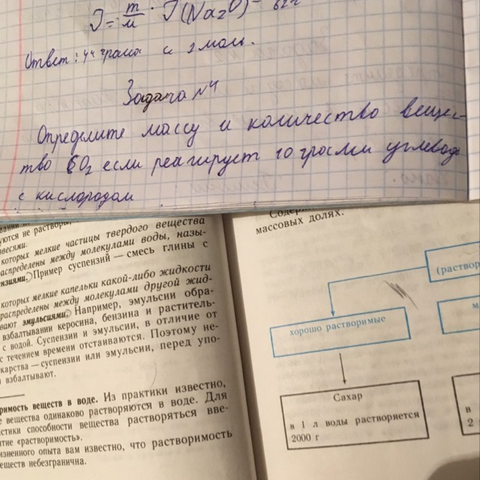 ν = m/M · ν(Na₂O) =
Ответ: 44 грама и 1 моль.
Задача №4
Определите массу и количество вещес-
тво CO₂ если реагирует 10 грамм углевода
с кислородом
уются не раство
весями.
которых мелкие частицы твердого вещества
распределены между молекулами воды, назы-
ензиями. Пример суспензий — смесь глины с
которых мелкие капельки какой-либо жидкости
распределены между молекулами другой жид-
вают эмульсиями. Например, эмульсии обра-
взбалтывании керосина, бензина и раститель-
с водой. Суспензии и эмульсии, в отличие от
с течением времени отстаиваются. Поэтому не-
карства — суспензии или эмульсии, перед упо-
взбалтывают.
римость веществ в воде. Из практики известно,
е вещества одинаково растворяются в воде. Для
истики способности вещества растворяться вве-
тие «растворимость».
изненного опыта вам известно, что растворимость
еществ небезгранична.
массовых долях.
(раствор
хорошо растворимые
м
Сахар
в 1 л воды растворяется
2000 г
в
2